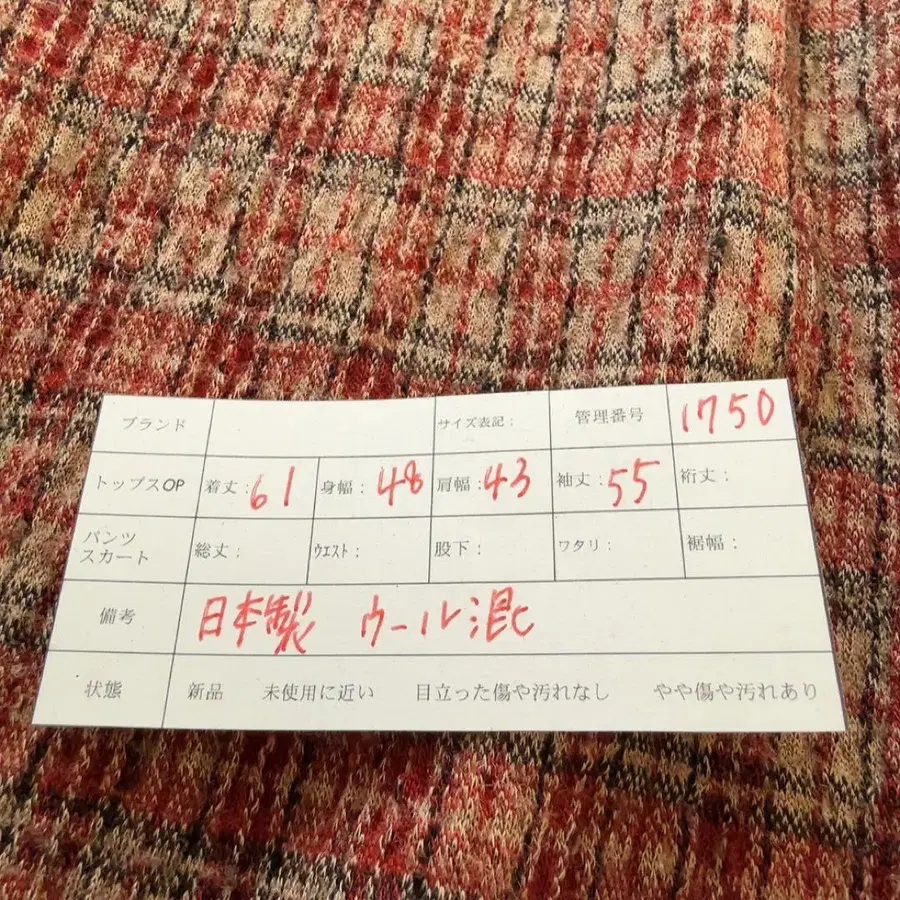 ブランド サイズ表記： 管理番号 1750
トップスOP 着丈：61 身幅：48 肩幅：43 袖丈：55 裄丈：
パンツ
スカート 総丈： ｳｴｽﾄ： 股下： ワタリ： 裾幅：
備考 日本製 ウール混
状態 新品 未使用に近い 目立った傷や汚れなし やや傷や汚れあり